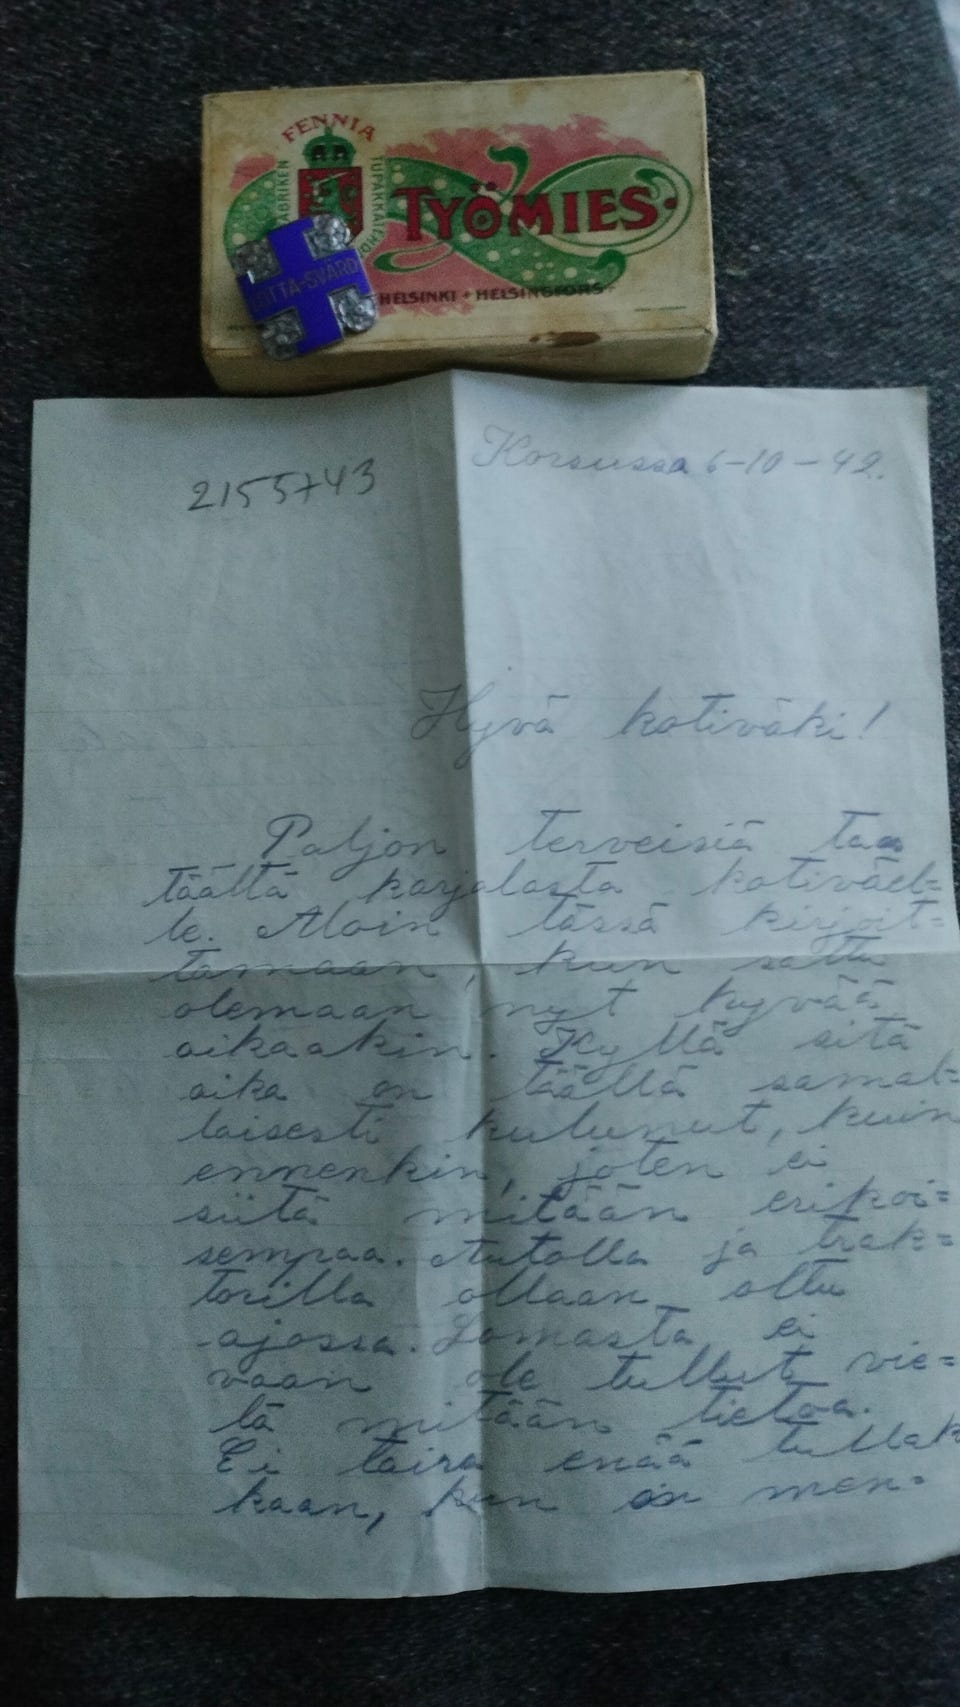 FENNIA
TUPAKKATEHDAS
TYÖMIES.
LOTTA-SVÄRD
HELSINKI + HELSINGFORS
2155743
Korsussa 6-10-42.
Hyvä kotiväki!
Paljon terveisiä taas
täältä karjalasta kotiväel=
le. Aloin tässä kirjoit=
tamaan, kun sattu
olemaan nyt hyvää
aikaakin. Kyllä sitä
aika on täällä samal=
laisesti kulunut, kuin
ennenkin, joten ei
siitä mitään erikoi=
sempaa. Autolla ja trak=
torilla ollaan oltu
ajossa. Lomasta ei
vaan ole tullut vie=
lä mitään tietoa.
Ei taira enää tullak
kaan, kun on men=